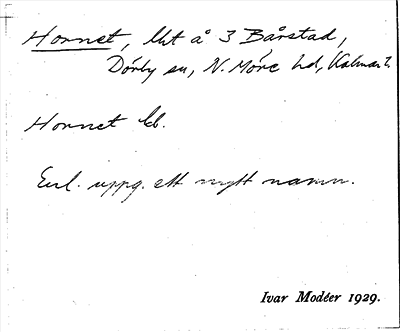 Hornet, lht å 3 Bårstad,
Dörby sn, N. Möre hd, Kalmar l.
Hornet kb.
Enl. uppg. ett nytt namn.
Ivar Modéer 1929.